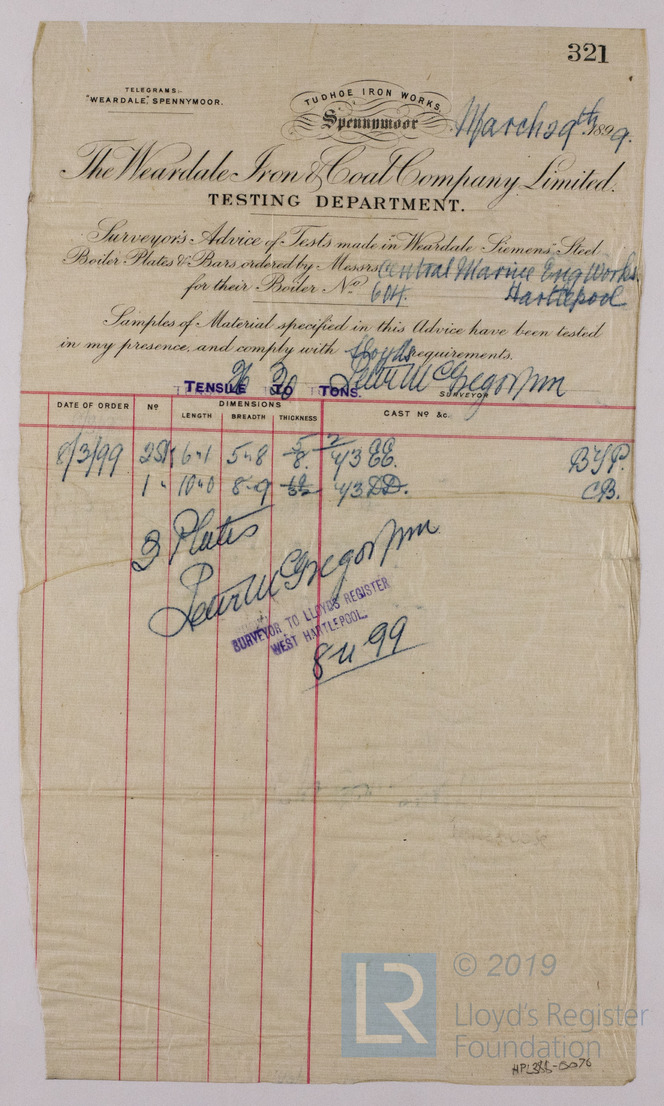 321
TELEGRAMS:-
"WEARDALE," SPENNYMOOR.
TUDHOE IRON WORKS,
Spennymoor
March 29th 1899.
The Weardale Iron & Coal Company, Limited.
TESTING DEPARTMENT.
Surveyor's Advice of Tests made in Weardale Siemens' Steel
Boiler Plates & Bars, ordered by Messrs Central Marine Eng Works
for their Boiler No 604. Hartlepool
Samples of Material specified in this Advice have been tested
in my presence, and comply with Lloyds requirements.
TENSILE 26 TO 30 TONS. Peter McGregor Jnr
SURVEYOR
DATE OF ORDER No DIMENSIONS CAST No &c.
LENGTH BREADTH THICKNESS
8/3/99 2 6-1 5-8 5/8 4/3 EE. B.Y.P.
1 " 10-0 8-9 4/3 DD. C.B.
3 Plates
Peter McGregor Jnr
SURVEYOR TO LLOYDS REGISTER
WEST HARTLEPOOL.
8 4 99
LR
© 2019
Lloyd's Register
Foundation
HPL388-0076